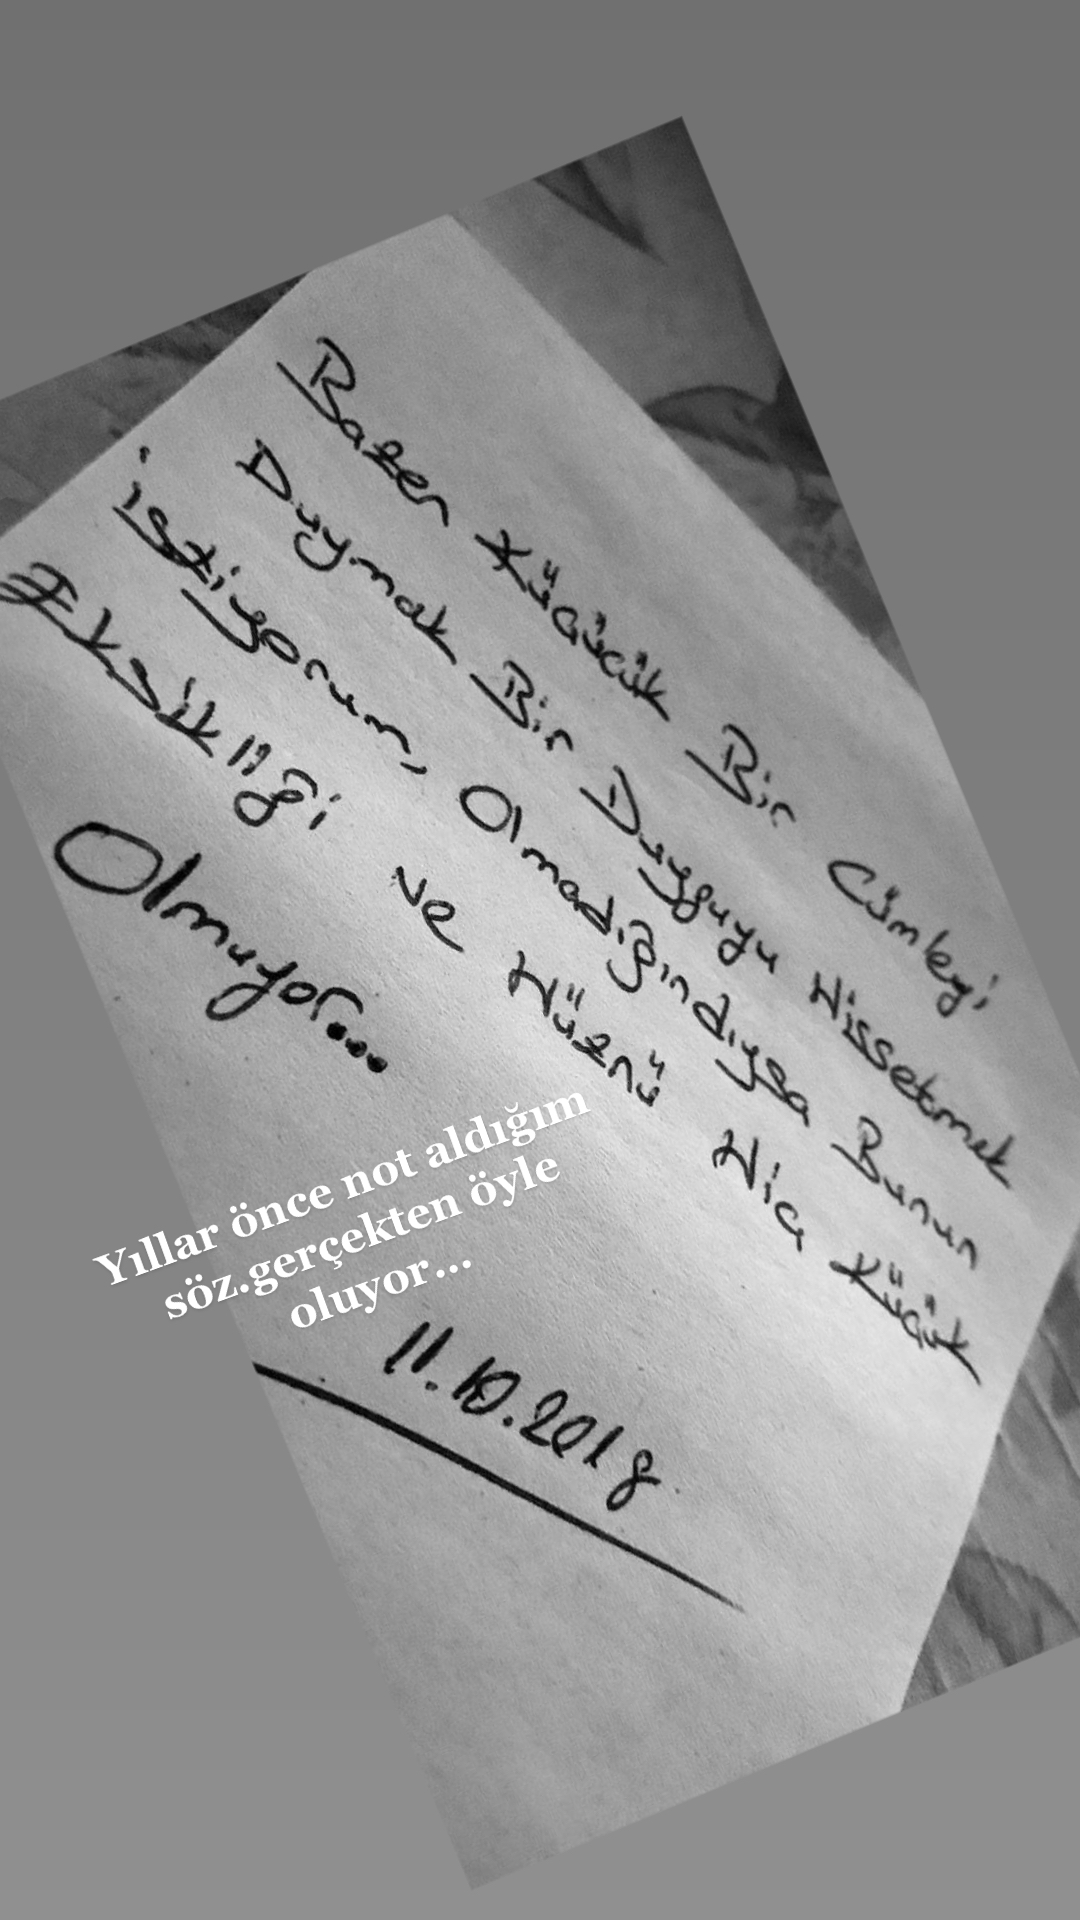 Bazen Küçücük Bir Cümleyi
Duymak Bir Duyguyu Hissetmek
istiyorum, Olmadığındıysa Bunun
Eksikliği ve Hüznü Hiç Küçük
Olmuyor...
Yıllar önce not aldığım
söz.gerçekten öyle
oluyor...
11.10.2018